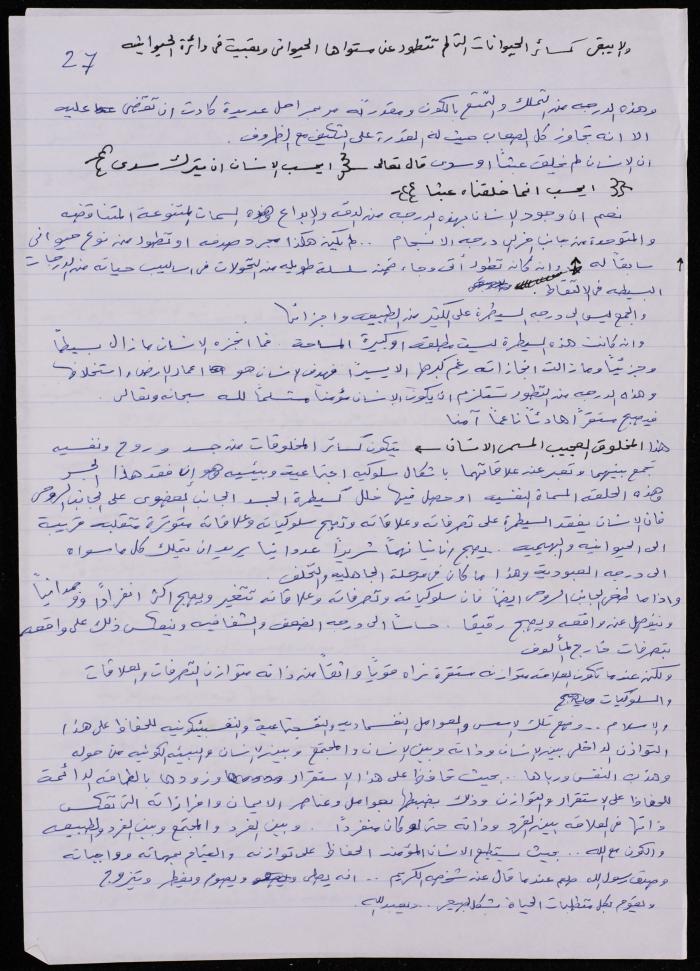 ولا يبقى كسائر الحيوانات التي لم تتطور عن مستواها الحيواني وبقيت في دائرة الحيوانيه
27
وهذه الدرجه من التملك والتمتع بالكون ومقدراته مر بمراحل عديدة كادت ان تقضي عليه
الا انه تجاوز كل الصعاب حيث له القدرة على التكيف مع الظروف .
ان الإنسان لم يخلق عبثاً او سدى قال تعالى { ايحسب الإنسان ان يترك سدى }
{ ايحسب انما خلقناه عبثا }
نعم ان وجود الإنسان بهذه الدرجه من الدقه والإبداع وهذه السمات المتنوعة المتناقضه
والمتوحدة من جانب اخر الى درجه الانسجام .. لم يكن هكذا مجرد صدفه او تطور من نوع حيواني
سابقاً له وان كان تطور أتى وجاء ضمن سلسلة طويله من التحولات في اساليب حياته من الدرجات
البسيطه في الإلتقاط
والجمع ليس الى درجه السيطرة على الكثير من الطبيعه واجزائها .
وان كانت هذه السيطرة ليست مطلقه او كبيرة المساحة . فما انجزه الإنسان ما زال بسيطاً
وجزئياً وما زالت انجازاته رغم كبرها الا يسيرا فهدف الإنسان هو اعمار الأرض واستخلافها
وهذه الدرجه من التطور تستلزم ان يكون الإنسان مؤمناً مسلماً لله سبحانه وتعالى .
فيصبح مستقراً هادئاً ناعماً آمنا
هذا المخلوق العجيب المسمى الإنسان ← يتكون كسائر المخلوقات من جسد وروح ونفسيه
تجمع بينهما وتعبر عن علاقاتهما باشكال سلوكيه اجتماعية وبيئيه وهو إن فقد هذا الجسر
وهذه الحلقه المسماة النفسيه او حصل فيها خلل كسيطرة الجسد الجانب العضوي على الجانب الروحي
فان الإنسان يفقد السيطرة على تصرفاته وعلاقاته وتصبح سلوكياته وعلاقاته متوترة متقلبه قريبة
الى الحيوانيه والبهيميه .. يصبح انانيا نهماً شريراً عدوانيا يريد ان يتملك كل ما سواه
الى درجه العبودية وهذا ما كان في مرحلة الجاهلية والتخلف .
واذا ما طغى الجانب الروحي ايضاً فان سلوكياته وتصرفاته وعلاقاته تتغير ويصبح اكثر انفراداً ووحدانياً
وينفصل عن واقعه ويصبح رقيقاً .. حساساً الى درجه الضعف والشفافيه وينعكس ذلك على واقعه
بتصرفات خارج المألوف
ولكن عندما تكون العلاقه متوازنه مستقرة نراه قوياً واثقاً من ذاته متوازن التصرفات والعلاقات
والسلوكيات
والإسلام .. وضع تلك الأسس والعوامل للحفاظ على هذا
التوازن الداخلي بين الإنسان وذاته وبين الإنسان والمجتمع وبين الإنسان والبيئه الكونيه من حوله
وهذب النفس ورباها .. بحيث تحافظ على هذا الإستقرار وزودها بالطاقه الدائمة
للحفاظ على الإستقرار والتوازن وذلك بضبطها بعوامل وعناصر الإيمان وافرازاته التي تنعكس
ذاتها في العلاقه بين الفرد وذاته حتى لو كان منفرداً . وبين الفرد والمجتمع وبين الفرد والطبيعه
والكون مع الله .. بحيث يستطيع الإنسان المؤمن الحفاظ على توازنه والقيام بمهماته وواجباته
وصدق رسول الله صلعم عندما قال عن شخصه الكريم .. انه يصلي ويصوم ويفطر ويتزوج
ويقوم بكل متطلبات الحياة بشكل طبيعي .. ويعبد الله .